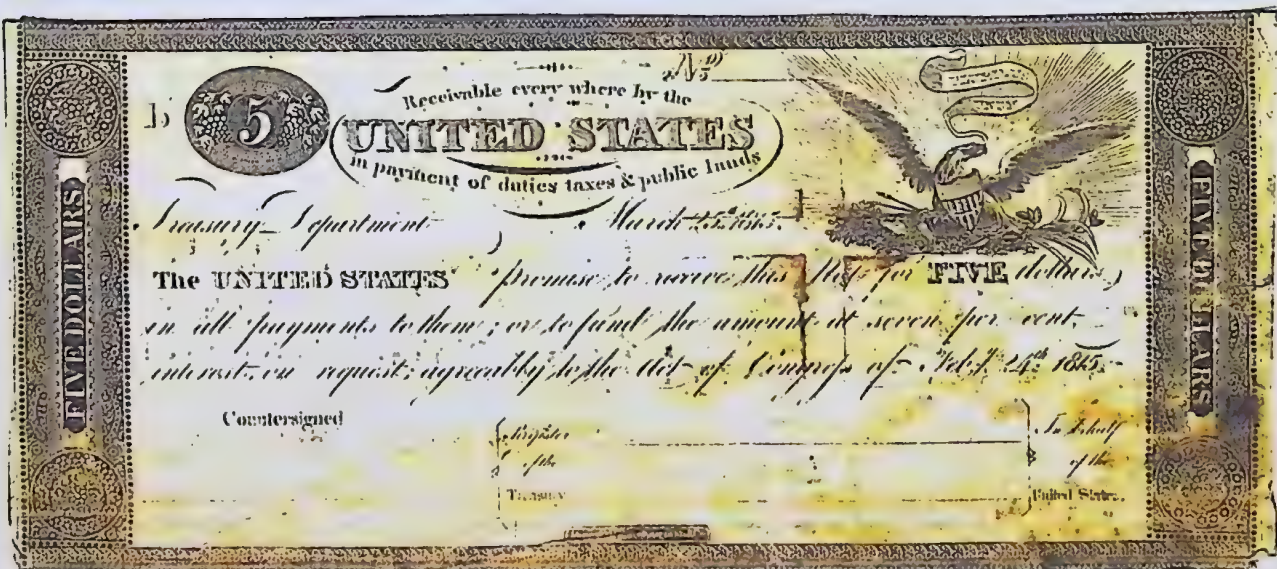 No
5
Receivable every where by the
UNITED STATES
in payment of duties taxes & public lands
Treasury Department March 25th 1815.
The UNITED STATES promise to receive this Note for FIVE dollars,
in all payments to them; or to fund the amount at seven per cent.
interest, on request, agreeably to the Act of Congress of Feby. 24th 1815.
Countersigned
Register
of the
Treasury
In behalf
of the
United States.
FIVE DOLLARS
FIVE DOLLARS